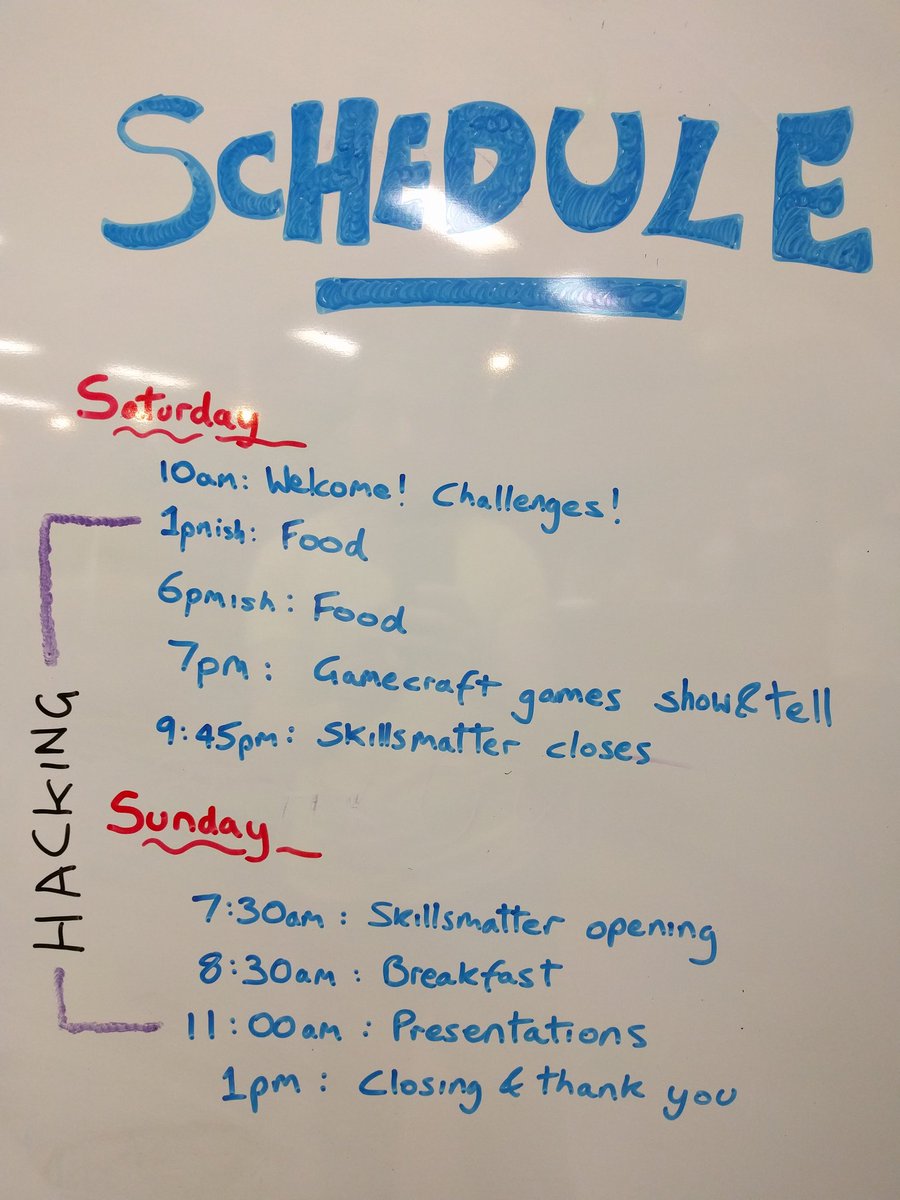 SCHEDULE
Saturday
10am: Welcome! Challenges!
1pmish: Food
6pmish: Food
7pm: Gamecraft games show&tell
9:45pm: Skillsmatter closes
HACKING
Sunday
7:30am: Skillsmatter opening
8:30am: Breakfast
11:00am: Presentations
1pm: Closing & thank you